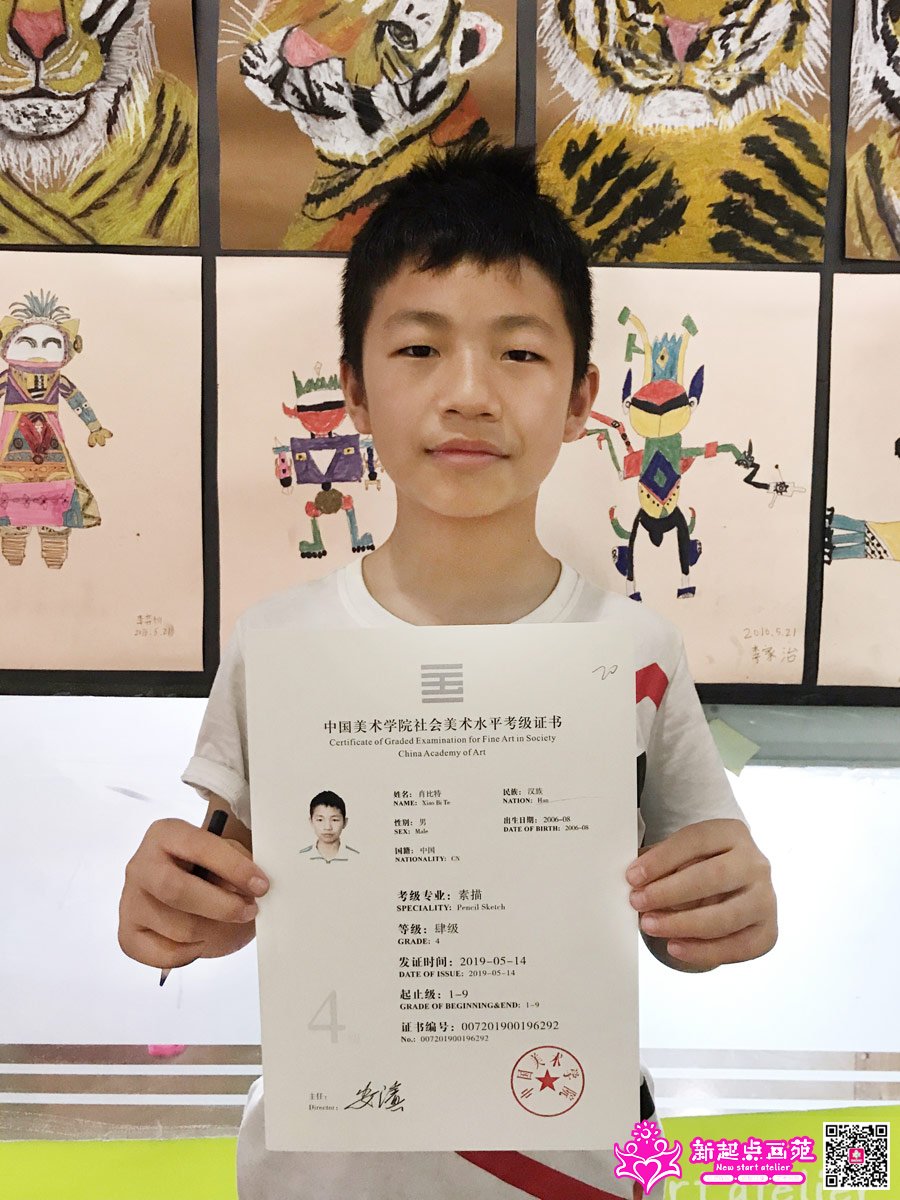 李奕桐
2010.5.21
2010.5.21
李家治
20
中国美术学院社会美术水平考级证书
Certificate of Graded Examination for Fine Art in Society
China Academy of Art
姓名：肖比特
NAME: Xiao Bi Te
民族：汉族
NATION: Han
性别：男
SEX: Male
出生日期：2006-08
DATE OF BIRTH: 2006-08
国籍：中国
NATIONALITY: CN
考级专业：素描
SPECIALITY: Pencil Sketch
等级：肆级
GRADE: 4
发证时间：2019-05-14
DATE OF ISSUE: 2019-05-14
起止级：1-9
GRADE OF BEGINNING&END: 1-9
证书编号：007201900196292
No.: 007201900196292
4级
主任：
Director:
中国美术学院
新起点画苑
New start atelier